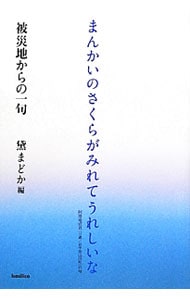 まんかいのさくらがみれてうれしいな
被災地からの一句
黛まどか 編
basilico